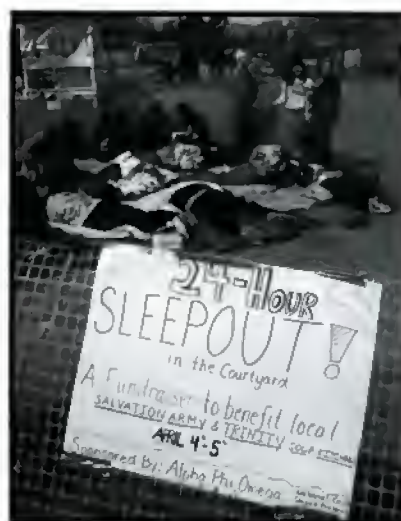 24-HOUR
SLEEPOUT!
in the Courtyard
A Fundraiser to benefit local
SALVATION ARMY & TRINITY SOUP KITCHENS
APRIL 4-5
Sponsored By: Alpha Phi Omega